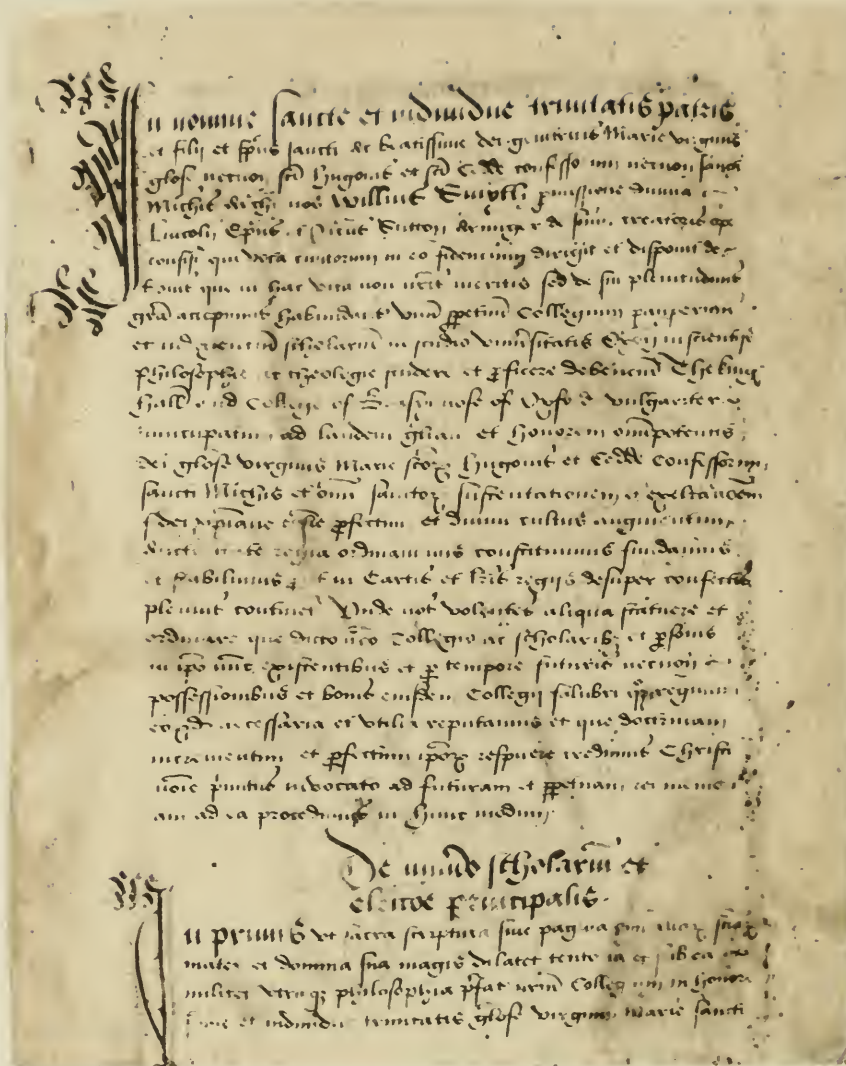 In nomine sancte et individue trinitatis patris
et filij et spūs sancti ac beatissime dei genitricis Marie virginis
gloſe necnon sctī Hugonis et sctī Cedde confesso necnon sancti
Michīs Archī nos Willms Smyth permissione divina
Lincoln Epus et Ricus Sutton Armiger de
confisi qui vota cunctorum in eo fidencium dirigit et disponit
que in hac vita non meritis sed de sui plenitudinis
grā accepimus unū ppetuū Collegium pauperum
et indigentiū scholariū in studio universitatis Oxon in scientijs
philosophie ac theologie studere et proficere debenciū The kyngs
hall and College of Brasynnose of Oxford vulgariter
nuncupatum ad laudem gloriam et honorem omnipotentis
dei gloſe virginis Marie sctōrum Hugonis et Cedde confessorum
sancti Michīs et omniū sanctorum sustentationem et exaltacōem
fidei xpiane ecclie profectum et divini cultus augmentum
auctoritate regia ordinavimus constituimus fundavimus
et stabilivimus put in Cartis et lris regijs desuper confectis
plenius continetr Unde nos volentes aliqua statuere et
ordinare que dicto nro Collegio ac scholaribz et personis
in ipo nunc existentibus et pro tempore futuris necnon
possessionibus et bonis eiusdem Collegij salubri regimini
necessaria et utilia reputamus et que doctrinam
incrementum et profectum ipōrum respicere credimus Christi
noīe primitus invocato ad futuram et ppetuam rei memori
am ad ea procedimus in hunc modum
De numero scholariū et
electōe principalis
In primis ut sacra scriptura sive pagina
mater et domina sua magis dilatet tentoria et
militet utraqz philosophia prefat nrm Collegium in honore
sancte et individue trinitatis gloſe virginis Marie sancti